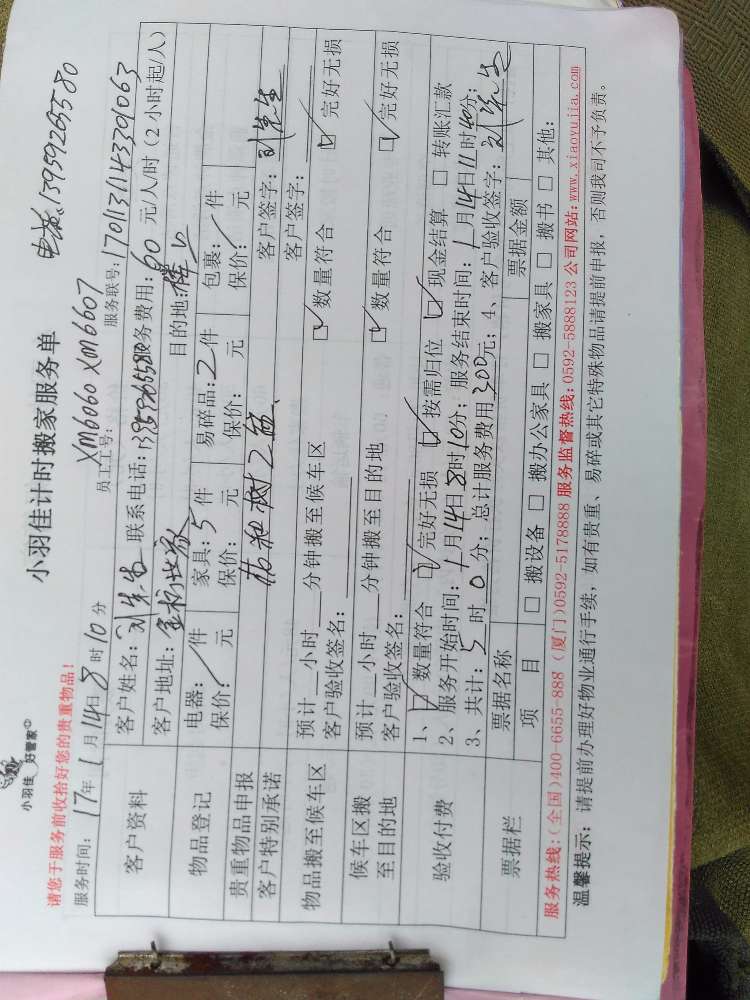 小羽佳 好管家
小羽佳计时搬家服务单 电话:13959265580
请您于服务前收拾好您的贵重物品!
员工工号: XM6060 XM6607
服务时间: 17年1月14日8时10分 服务联号:1701131143301063
客户资料 客户姓名: 刘先生 联系电话:13959265580 服务费用:60 元/人/时(2小时起/人)
客户地址: 金枋世家 目的地:楼上
物品登记 电器: / 件 家具: 5 件 易碎品: 2 件 包裹: / 件
保价: 元 保价: 元 保价: 元 保价: 元
贵重物品申报
客户特别承诺 客户签字: 刘先生
物品搬至候车区 预计 小时 分钟搬至候车区 客户签字:
客户验收签名: ☑数量符合 ☑完好无损
候车区搬至目的地 预计 小时 分钟搬至目的地
客户验收签名: ☑数量符合 ☑完好无损
验收付费 1、☑数量符合 ☑完好无损 ☑按需归位 ☑现金结算 □转账汇款
2、服务开始时间: 1月14日8时10分; 服务结束时间: 1月14日11时40分;
3、共计: 5时0分; 总计服务费用300元; 4、客户验收签字: 刘先生
票据栏 票据名称 票据金额
项目 □搬设备 □搬办公家具 □搬家具 □搬书 □其他:
服务热线:(全国)400-6655-888 (厦门)0592-5178888 服务监督热线:0592-5888123 公司网站:www.xiaoyujia.com
温馨提示: 请提前办理好物业通行手续, 如有贵重、易碎或其它特殊物品请提前申报, 否则我司不予负责。